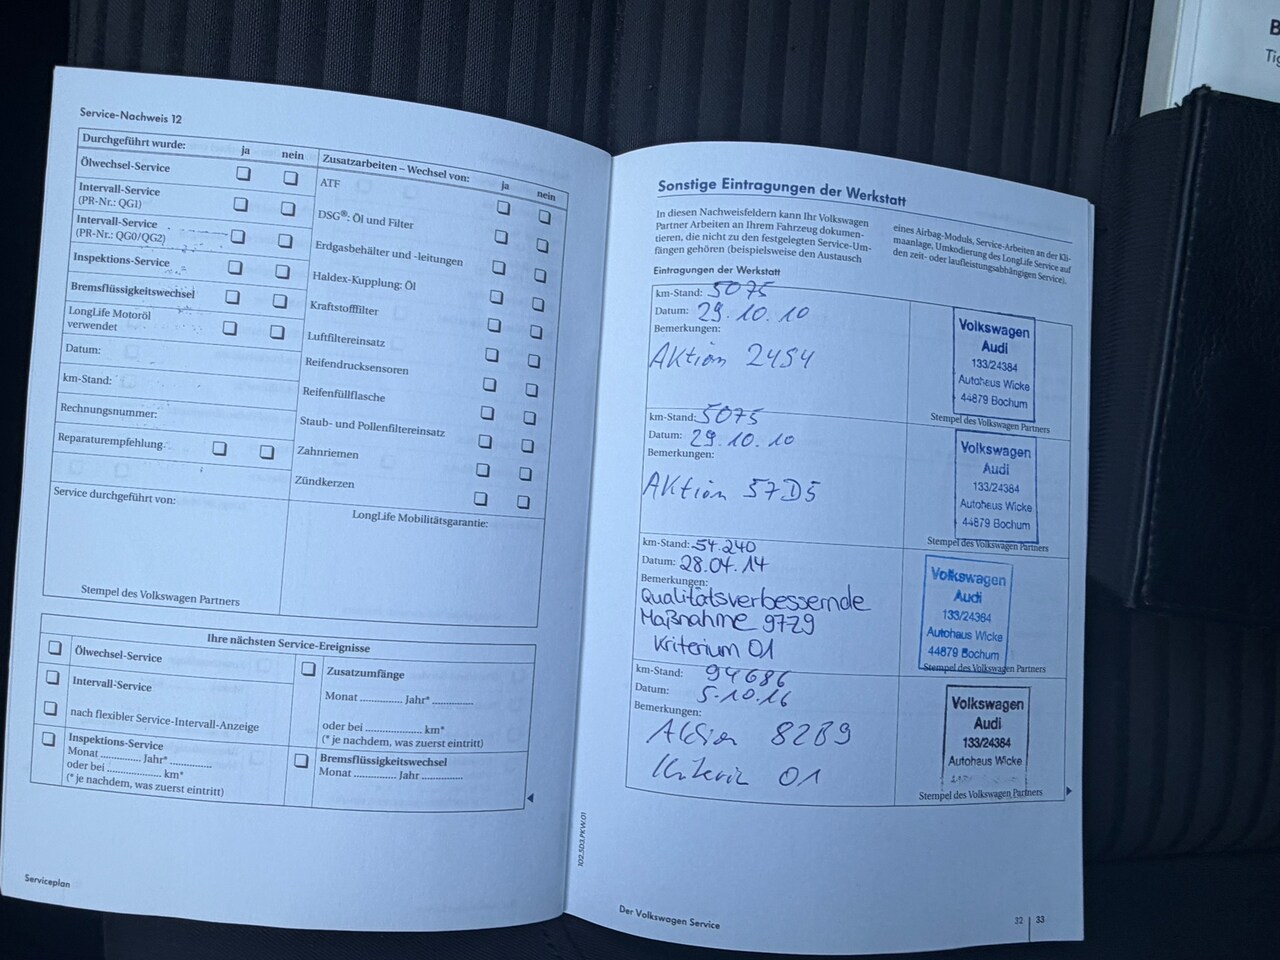 Service-Nachweis 12
Durchgeführt wurde: ja nein
Ölwechsel-Service
Intervall-Service
(PR-Nr.: QG1)
Intervall-Service
(PR-Nr.: QG0/QG2)
Inspektions-Service
Bremsflüssigkeitswechsel
LongLife Motoröl
verwendet
Datum:
km-Stand:
Rechnungsnummer:
Reparaturempfehlung:
Service durchgeführt von:
Stempel des Volkswagen Partners
Zusatzarbeiten – Wechsel von: ja nein
ATF
DSG®: Öl und Filter
Erdgasbehälter und -leitungen
Haldex-Kupplung: Öl
Kraftstofffilter
Luftfiltereinsatz
Reifendrucksensoren
Reifenfüllflasche
Staub- und Pollenfiltereinsatz
Zahnriemen
Zündkerzen
LongLife Mobilitätsgarantie:
Ihre nächsten Service-Ereignisse
Ölwechsel-Service
Intervall-Service
nach flexibler Service-Intervall-Anzeige
Inspektions-Service
Monat .............. Jahr* ..............
oder bei ........................ km*
(* je nachdem, was zuerst eintritt)
Zusatzumfänge
Monat .............. Jahr* ..............
oder bei ..................... km*
(* je nachdem, was zuerst eintritt)
Bremsflüssigkeitswechsel
Monat .............. Jahr ..............
Serviceplan
102.5D3.PKW.01
Sonstige Eintragungen der Werkstatt
In diesen Nachweisfeldern kann Ihr Volkswagen
Partner Arbeiten an Ihrem Fahrzeug dokumen-
tieren, die nicht zu den festgelegten Service-Um-
fängen gehören (beispielsweise den Austausch
eines Airbag-Moduls, Service-Arbeiten an der Kli-
maanlage, Umkodierung des LongLife Service auf
den zeit- oder laufleistungsabhängigen Service).
Eintragungen der Werkstatt
km-Stand: 5075
Datum: 29.10.10
Bemerkungen:
Aktion 24S4
Volkswagen
Audi
133/24384
Autohaus Wicke
44879 Bochum
Stempel des Volkswagen Partners
km-Stand: 5075
Datum: 29.10.10
Bemerkungen:
Aktion 57D5
Volkswagen
Audi
133/24384
Autohaus Wicke
44879 Bochum
Stempel des Volkswagen Partners
km-Stand: 54.240
Datum: 28.04.14
Bemerkungen:
Qualitätsverbessernde
Maßnahme 97Z9
Kriterium 01
Volkswagen
Audi
133/24384
Autohaus Wicke
44879 Bochum
Stempel des Volkswagen Partners
km-Stand: 94686
Datum: 5.10.16
Bemerkungen:
Aktion 82B9
Kriterium 01
Volkswagen
Audi
133/24384
Autohaus Wicke
Stempel des Volkswagen Partners
Der Volkswagen Service
32 33